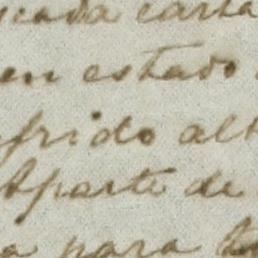 cada carta
en estado
frido alt
Aparte de
a para